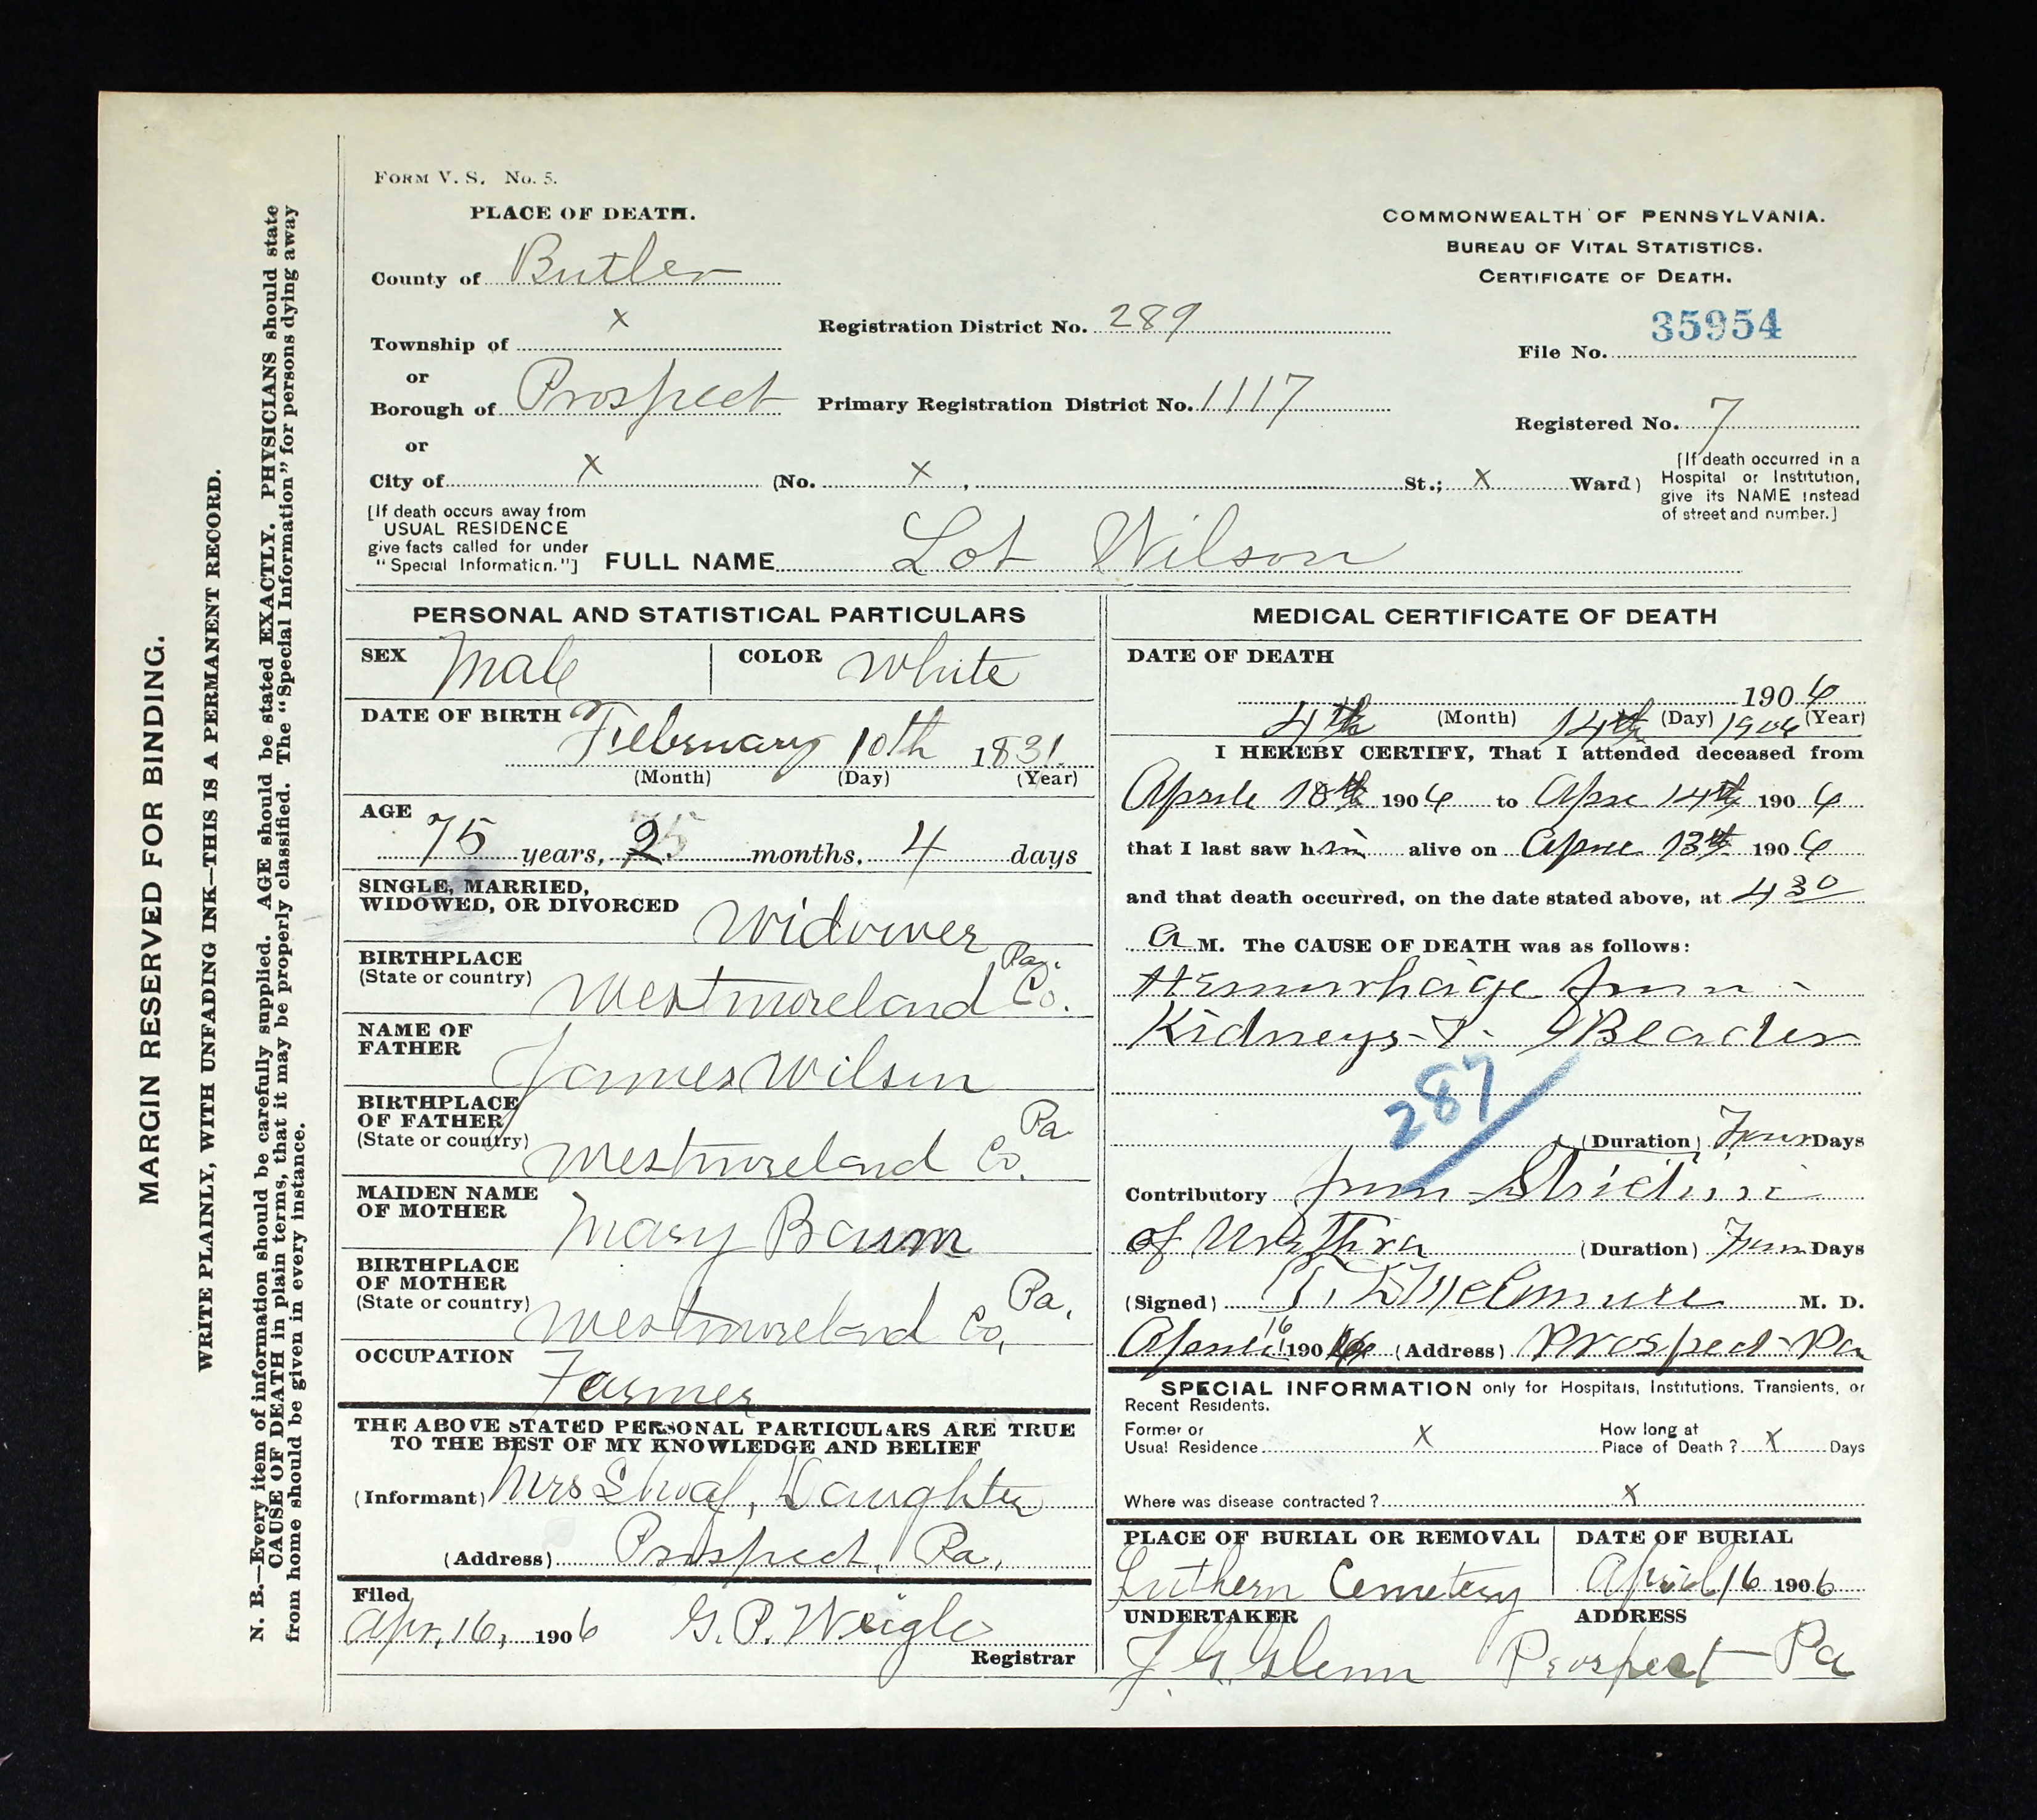 FORM V. S. No. 5.
PLACE OF DEATH.
COMMONWEALTH OF PENNSYLVANIA.
BUREAU OF VITAL STATISTICS.
CERTIFICATE OF DEATH.
County of Butler
Township of x
Registration District No. 289
File No. 35954
or
Borough of Prospect
Primary Registration District No. 1117
Registered No. 7
or
City of x (No. x , St.; x Ward)
[If death occurred in a
Hospital or Institution,
give its NAME instead
of street and number.]
[If death occurs away from
USUAL RESIDENCE
give facts called for under
"Special Information."]
FULL NAME Lot Wilson
PERSONAL AND STATISTICAL PARTICULARS
SEX Male COLOR White
DATE OF BIRTH
February 10th 1831.
(Month) (Day) (Year)
AGE
75 years, 2 months, 4 days
SINGLE, MARRIED,
WIDOWED, OR DIVORCED
Widower
BIRTHPLACE
(State or country)
Westmoreland Co. Pa.
NAME OF
FATHER
James Wilson
BIRTHPLACE
OF FATHER
(State or country)
Westmoreland Co. Pa
MAIDEN NAME
OF MOTHER
Mary Baum
BIRTHPLACE
OF MOTHER
(State or country)
Westmoreland Co, Pa.
OCCUPATION
Farmer
THE ABOVE STATED PERSONAL PARTICULARS ARE TRUE
TO THE BEST OF MY KNOWLEDGE AND BELIEF
(Informant) Mrs , Daughter
(Address) Prospect, Pa,
Filed
Apr. 16, 1906 G. P. Weigle
Registrar
MEDICAL CERTIFICATE OF DEATH
DATE OF DEATH
1906
4th (Month) 14th (Day) 1906 (Year)
I HEREBY CERTIFY, That I attended deceased from
1906 to 14th 1906
that I last saw him alive on 13th 1906
and that death occurred, on the date stated above, at 4 30
a M. The CAUSE OF DEATH was as follows:
Hemorrhaige from -
Kidneys Blader
287
(Duration) Four Days
Contributory from Stricture
of Urethra (Duration) Four Days
(Signed) M. D.
16 1906 (Address) Prospect Pa
SPECIAL INFORMATION only for Hospitals, Institutions, Transients, or
Recent Residents.
Former or
Usual Residence x
How long at
Place of Death? x Days
Where was disease contracted? x
PLACE OF BURIAL OR REMOVAL
Luthern Cemetery
DATE OF BURIAL
April 16 1906
UNDERTAKER
J. G. Glenn
ADDRESS
Prospect Pa
MARGIN RESERVED FOR BINDING.
WRITE PLAINLY, WITH UNFADING INK—THIS IS A PERMANENT RECORD.
N. B.—Every item of information should be carefully supplied. AGE should be stated EXACTLY. PHYSICIANS should state
CAUSE OF DEATH in plain terms, that it may be properly classified. The "Special Information" for persons dying away
from home should be given in every instance.